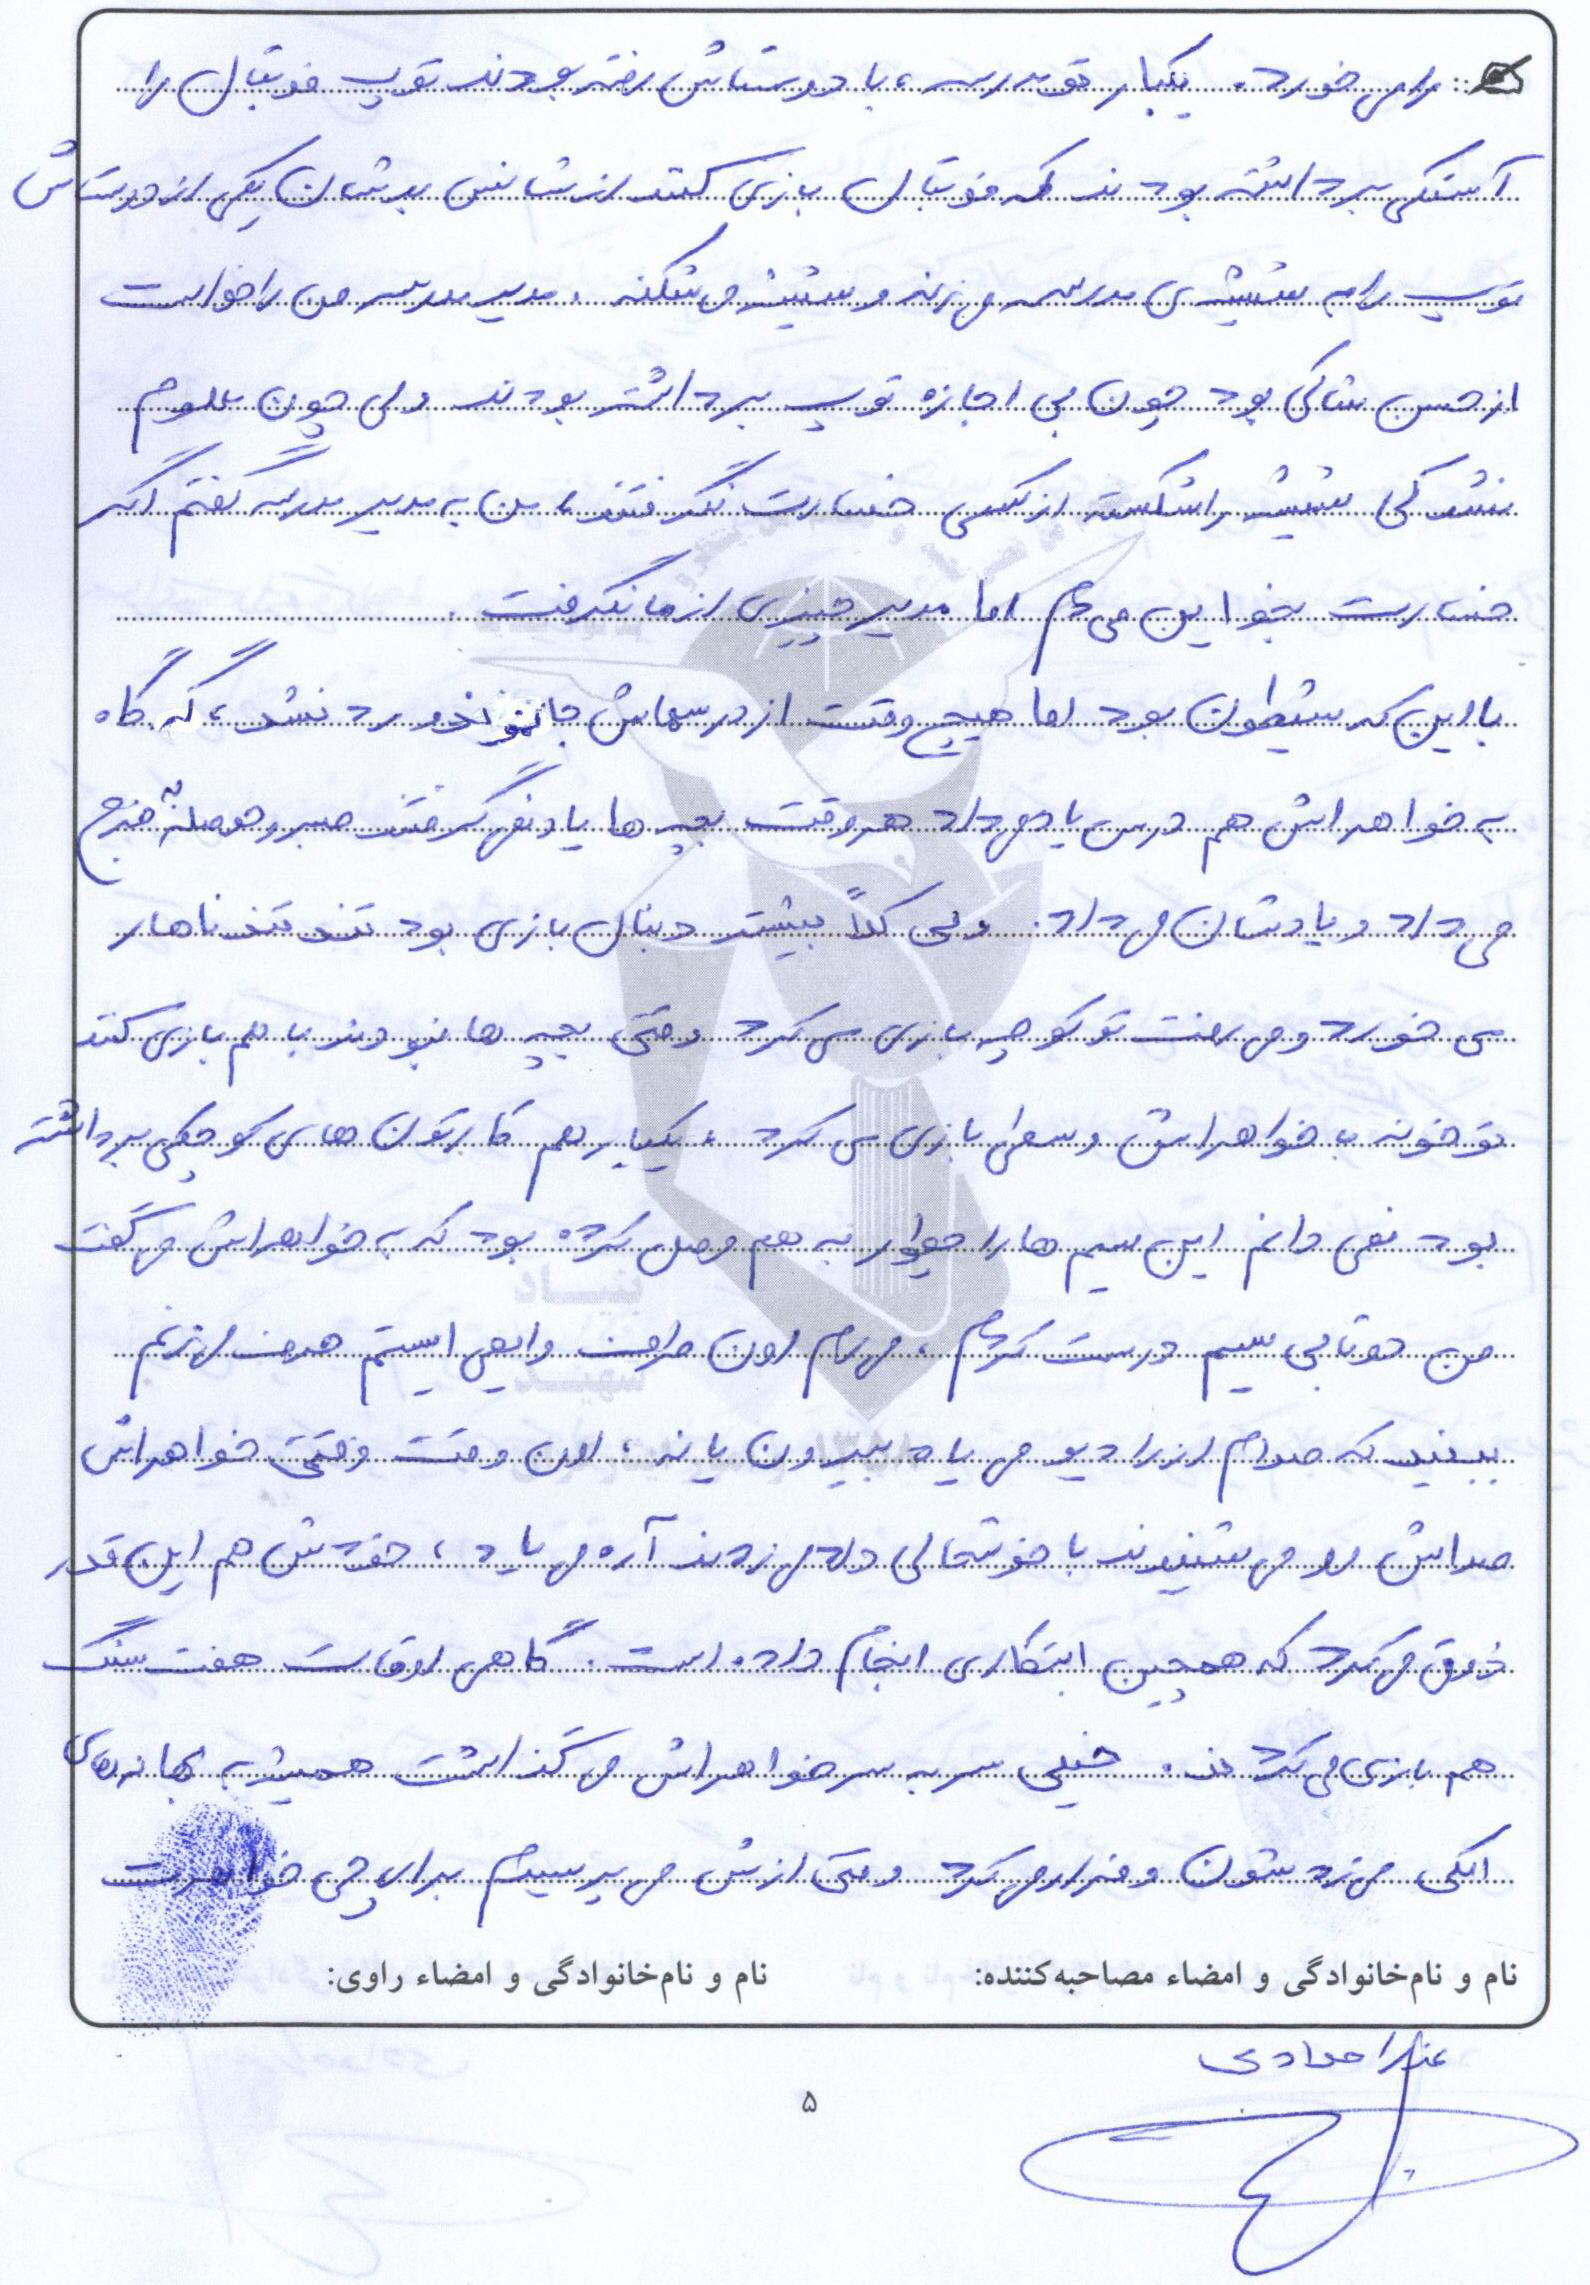 را می خورد. یکبار تو مدرسه، با دوستاش رفته بودند توپ فوتبال را
آستکی برداشته بودند که فوتبال بازی کنند از شانس بدشان یکی از دوستاش
توپ را به شیشه ی مدرسه می زند و شیشه می شکند. مدیر مدرسه من را خواست
از حسن شاکی بود چون بی اجازه توپ برداشته بودند ولی چون معلوم
نشد کی شیشه را شکسته از کسی خسارت نگرفتند، من به مدیر مدرسه گفتم اگر
خسارت بخواین می دم اما مدیر چیزی از ما نگرفت.
با این که شیطون بود اما هیچ وقت از درسهاش جا نموند و رد نشد، گه گاه
به خواهراش هم درس یاد می داد هر وقت بچه ها یاد نمی گرفتند صبر و حوصله خرج
می داد و یادشان می داد. ولی کلاً بیشتر دنبال بازی بود تند تند ناهار
می خورد و می رفت تو کوچه بازی می کرد وقتی بچه ها نبودند با هم بازی کنند
تو خونه با خواهراش وسطی بازی می کرد، یکبار هم کارتون های کوچکی برداشته
بود نمی دانم این سیم ها را چطور به هم وصل کرده بود که به خواهراش می گفت
من دو تا بی سیم درست کردم، می رم اون طرف وایمی ایستم حرف می زنم
ببینید که صدام از رادیو می یاد بیرون یا نه، اون وقت وقتی خواهراش
صداش رو می شنیدند با خوشحالی داد می زدند آره می یاد، خودش هم این قدر
ذوق می کرد که همچین ابتکاری انجام داده است. گاهی اوقات هفت سنگ
هم بازی می کردند. خیلی سر به سر خواهراش می گذاشت همیشه به بهانه های
الکی می زدشون و فرار می کرد وقتی ازش می پرسیدم برای چی خواهرت
نام و نام‌خانوادگی و امضاء مصاحبه‌کننده:
نام و نام‌خانوادگی و امضاء راوی:
۵
بنیاد
شهید